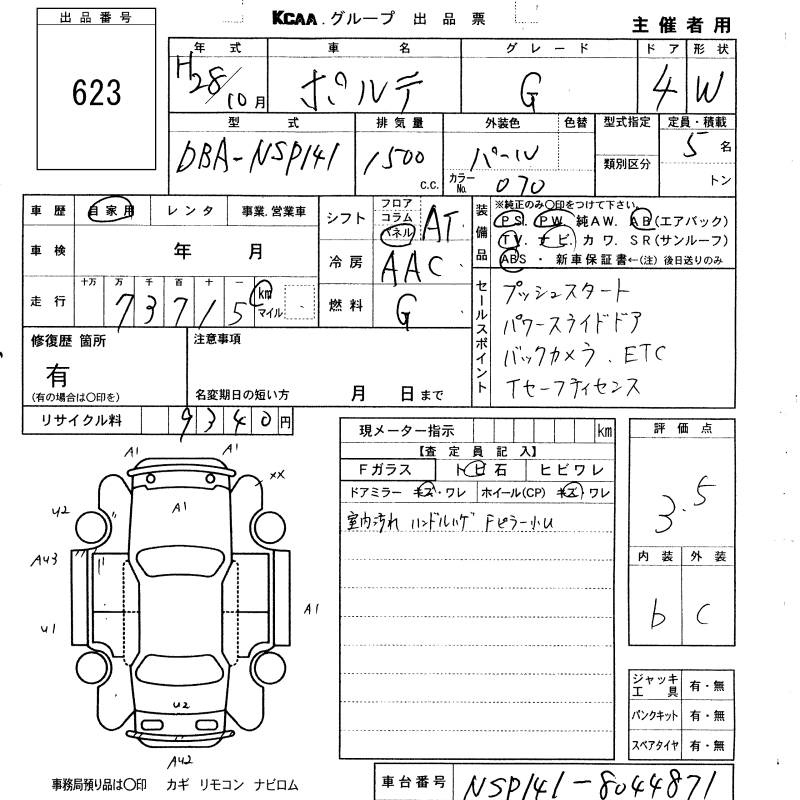 KCAA.グループ 出品票
主催者用
出品番号
623
年式 車名 グレード ドア 形状
H28/10月 ポルテ G 4 W
型式 排気量 外装色 色替 型式指定 定員・積載
DBA-NSP141 1500 c.c. パール 5名
類別区分
カラーNo. 070 トン
車歴 自家用 レンタ 事業.営業車
シフト フロア コラム パネル AT
装備品
※純正のみ〇印をつけて下さい。
PS. PW. 純AW. AB(エアバック)
TV. ナビ. カワ. SR(サンルーフ)
ABS ・ 新車保証書←(注) 後日送りのみ
車検 年 月
冷房 AAC
走行 十万 万 千 百 十 一
73715 km マイル
燃料 G
セールスポイント
プッシュスタート
パワースライドドア
バックカメラ. ETC
Tセーフティセンス
修復歴 箇所
有
(有の場合は〇印を)
注意事項
名変期日の短い方 月 日まで
リサイクル料 9340円
現メーター指示 km
【査定員記入】
Fガラス トビ石 ヒビワレ
ドアミラー キズ・ワレ ホイール(CP) キズ・ワレ
室内汚れ ハンドルハゲ Fピラー小U
評価点
3.5
内装 外装
b C
A1 A1
XX
A1
U2
A43
U1
A1
U2
A42
ジャッキ工具 有・無
パンクキット 有・無
スペアタイヤ 有・無
事務局預り品は〇印 カギ リモコン ナビロム
車台番号 NSP141-8044871